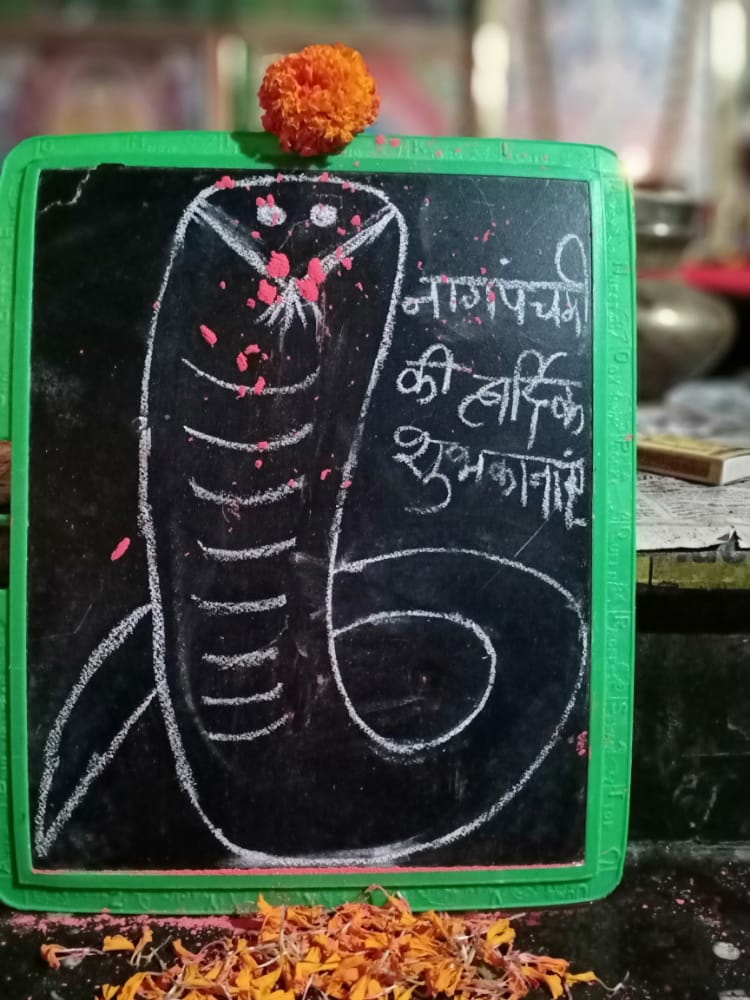 नागपंचमी
की हार्दिक
शुभकानाएं